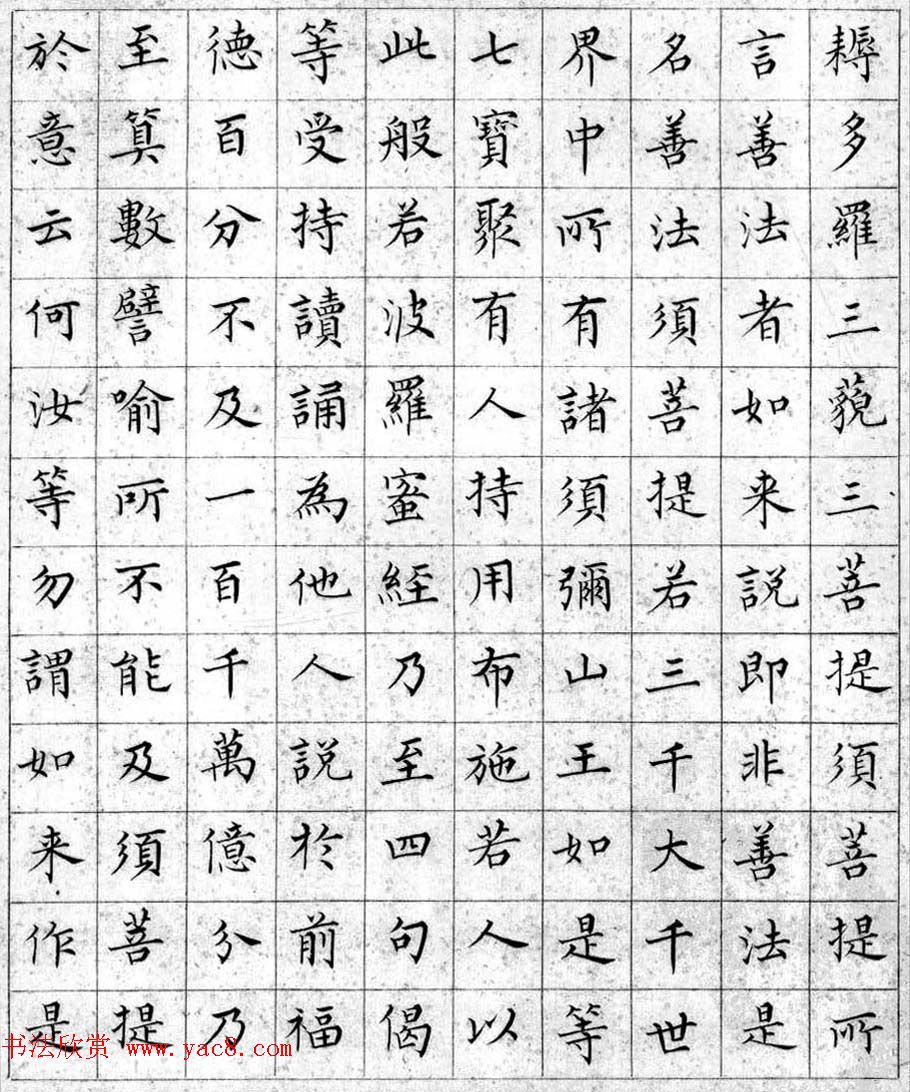 耨多羅三藐三菩提須菩提所
言善法者如来説即非善法是
名善法須菩提若三千大千世
界中所有諸須彌山王如是等
七寶聚有人持用布施若人以
此般若波羅蜜經乃至四句偈
等受持讀誦為他人説於前福
德百分不及一百千萬億分乃
至算數譬喻所不能及須菩提
於意云何汝等勿謂如来作是
书法欣赏 www.yac8.com